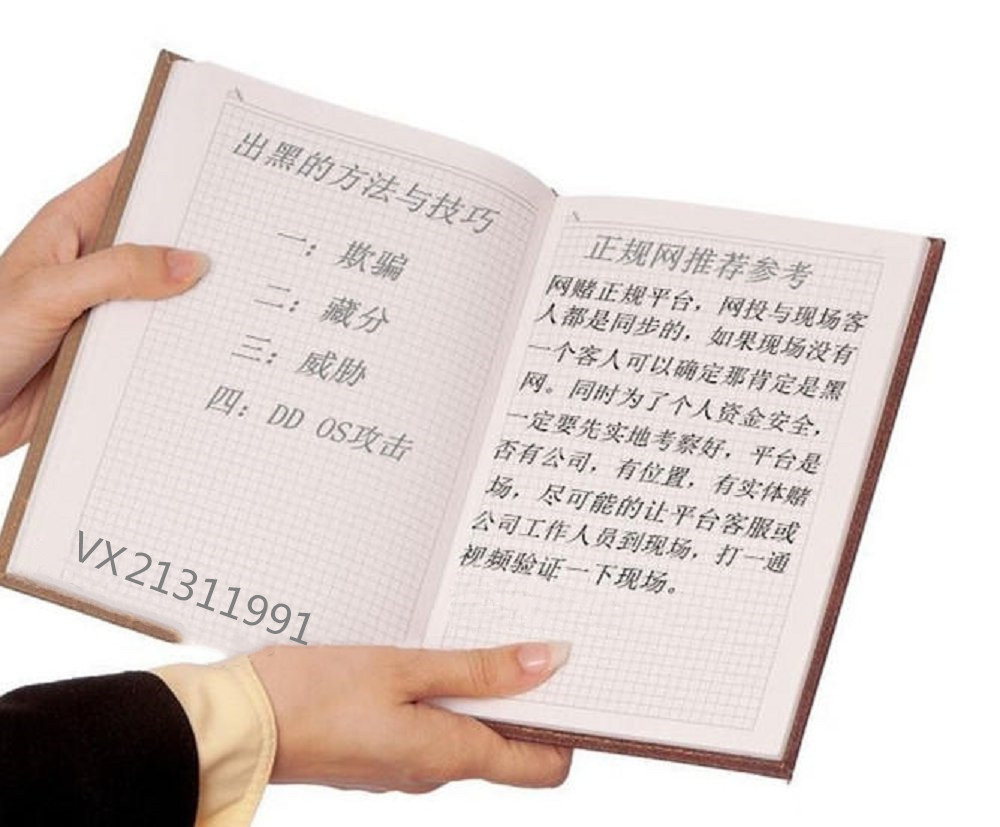 出黑的方法与技巧
一：欺骗
二：藏分
三：威胁
四：DD OS攻击
VX21311991
正规网推荐参考
网赌正规平台，网投与现场客
人都是同步的，如果现场没有
一个客人可以确定那肯定是黑
网。同时为了个人资金安全，
一定要先实地考察好，平台是
否有公司，有位置，有实体赌
场，尽可能的让平台客服或
公司工作人员到现场，打一通
视频验证一下现场。